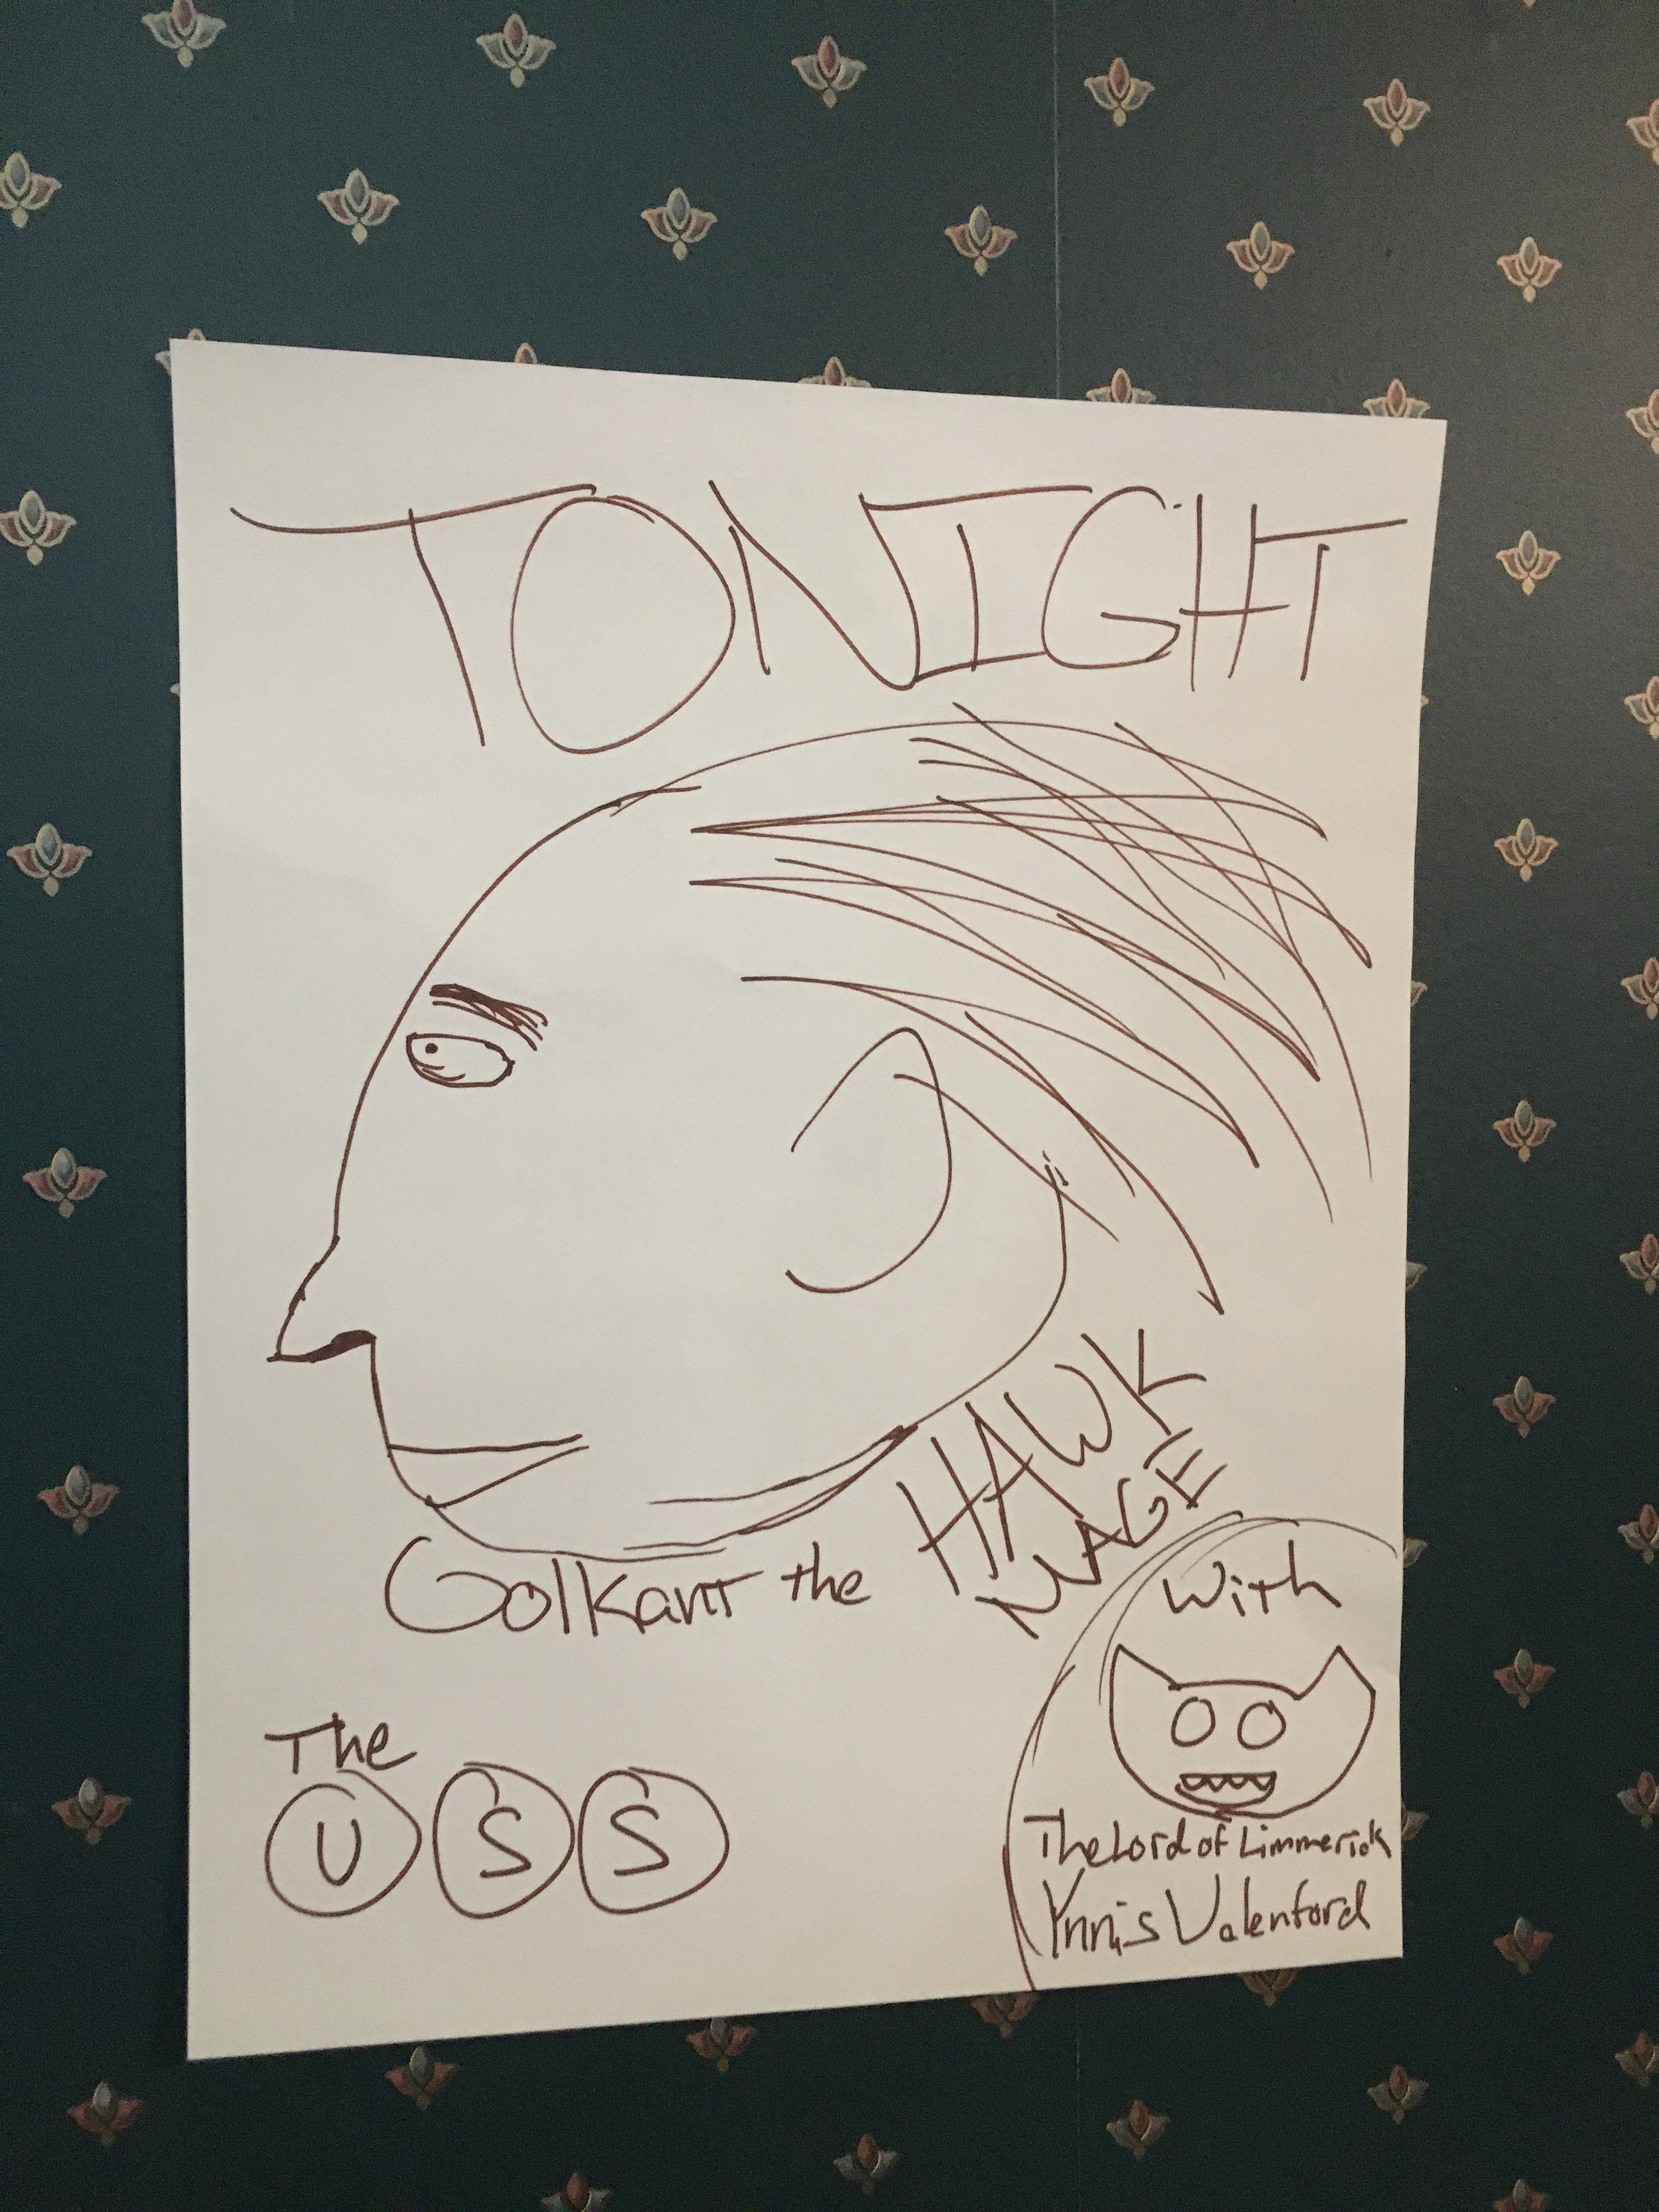 TONIGHT
Golkant the HAWK
MAGE
The
U S S
With
The Lord of Limmerick
Ynnis Valenford